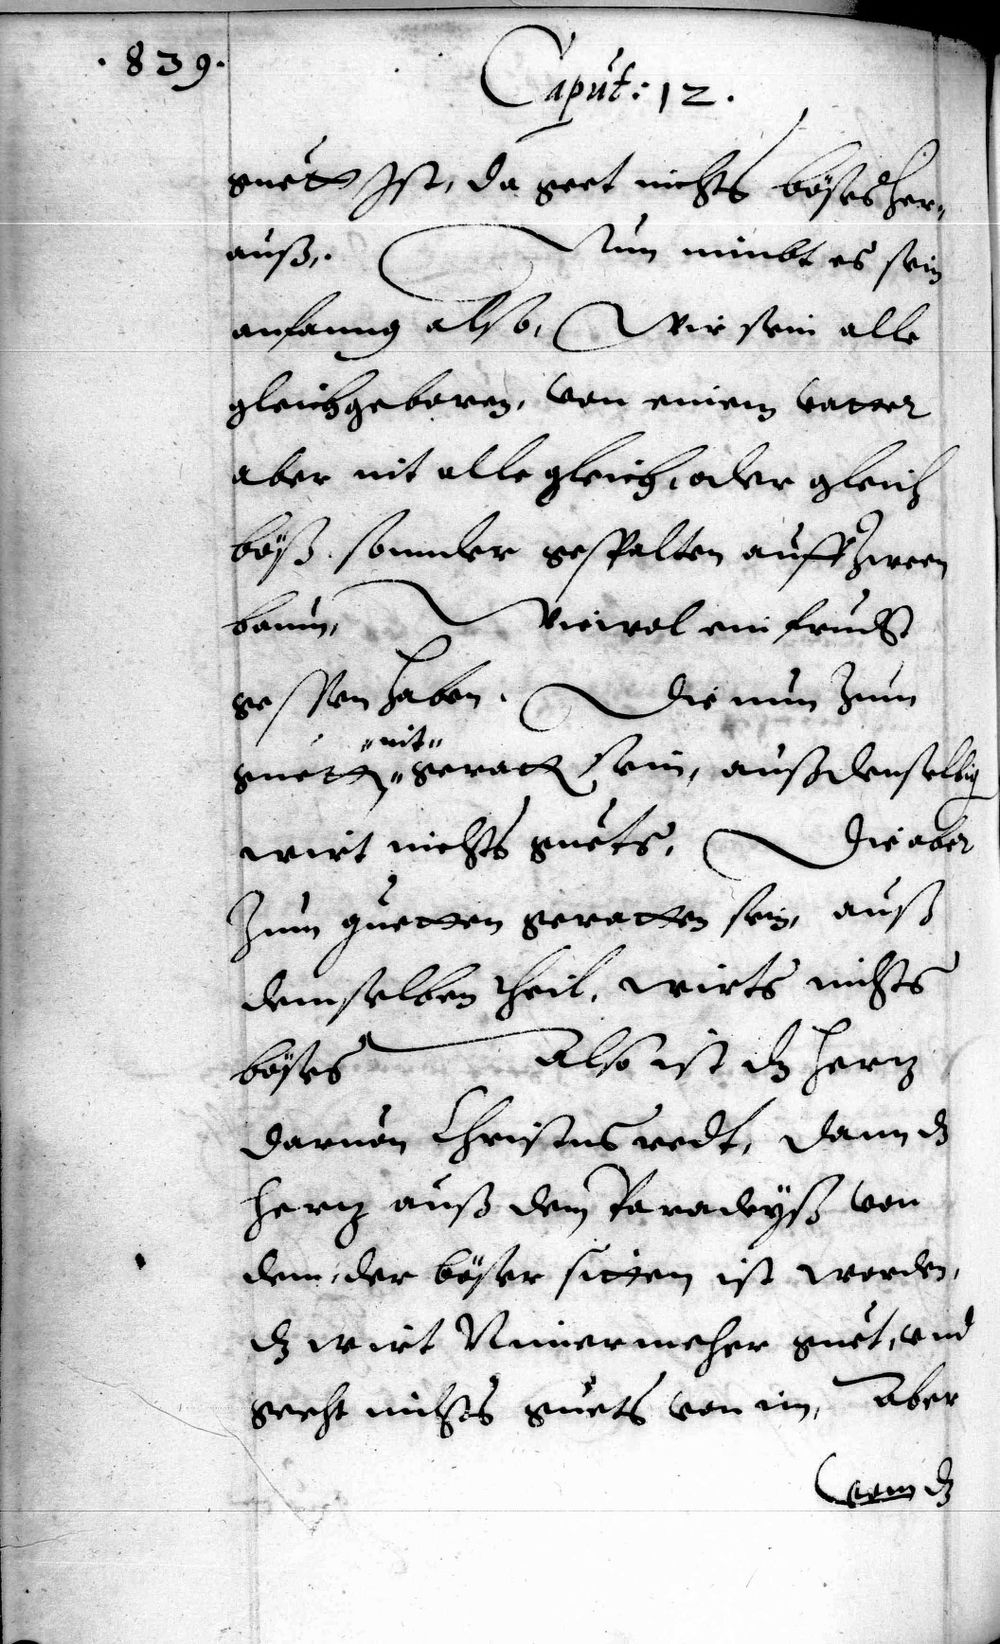 .839.
Caput: 12.
guett Ist, da geet nichts böses her„
auß,. Nun nimbt es sein
anfanng also, Wir sein alle
gleich geboren, von einem vatter
aber nit alle gleich, oder gleich
böß. sonnder gespalten auff zween
baum, Wiewol ein frucht
gessen haben. Die nun zum
„nit„
guetten„ geratten sein, auß denselbig
wirt nichts guets, Die aber
zum guetten geratten sein, auß
demselben theil, wirts nichts
böses Also ist dz hertz
daruon Christus redt, dann dz
hertz auß dem Paradeyß von
dem, der böser sitten ist worden,
dz wirt Nimermeher guet, und
geeht nichts guets von im, Aber
vom dz